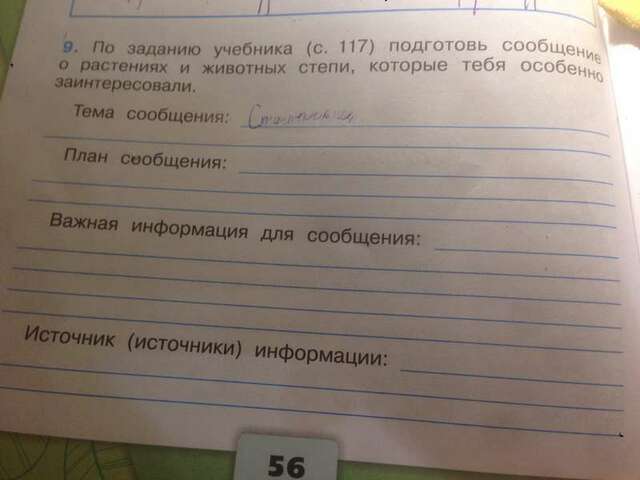 9. По заданию учебника (с. 117) подготовь сообщение
о растениях и животных степи, которые тебя особенно
заинтересовали.
Тема сообщения:
План сообщения:
Важная информация для сообщения:
Источник (источники) информации:
56